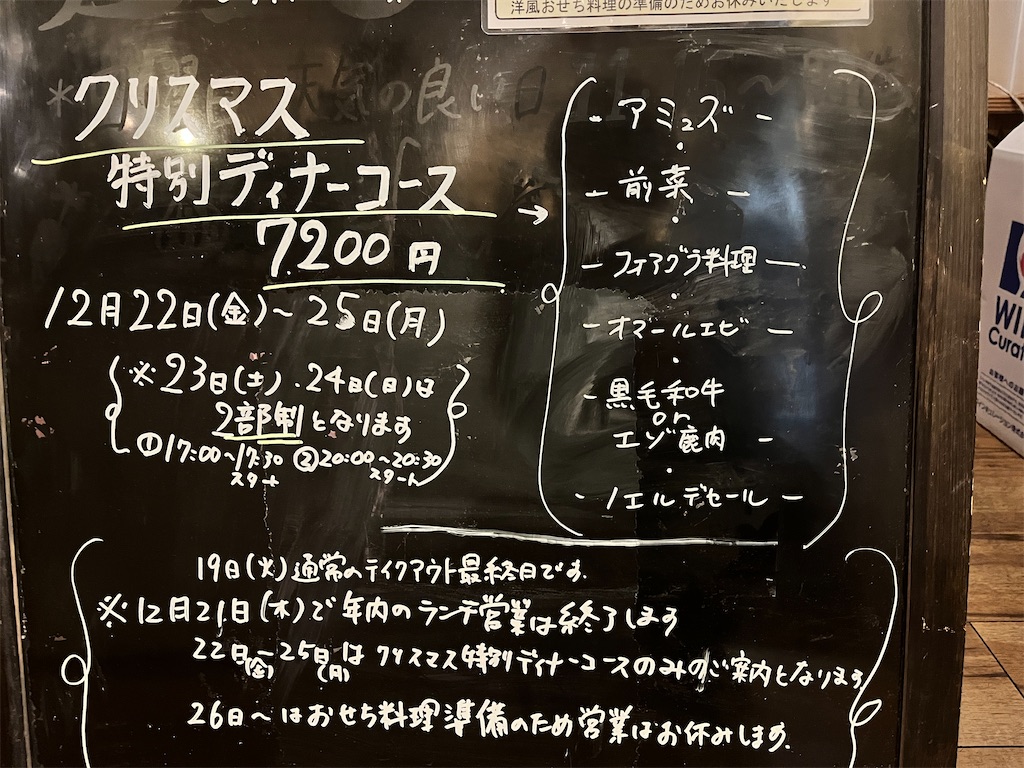 洋風おせち料理の準備のためお休みいたします
クリスマス
特別ディナーコース
7200円
12月22日(金)~25日(月)
※23日(土).24日(日)は
2部制となります
①17:00~17:30 ②20:00~20:30
スタート スタート
- アミューズ -
- 前菜 -
- フォアグラ料理 -
- オマールエビ -
- 黒毛和牛
or
エゾ鹿肉 -
- ノエルデセール -
19日(火)通常のテイクアウト最終日です.
※12月21日(木)で年内のランチ営業は終了します
22日(金)~25日(月)はクリスマス特別ディナーコースのみのご案内となります
26日~はおせち料理準備のため営業はお休みします.